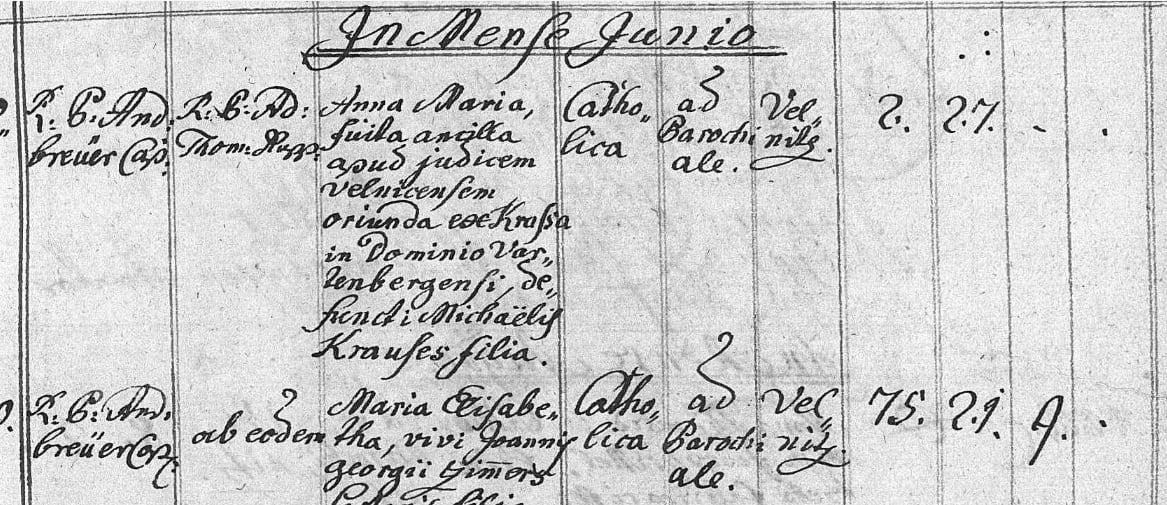 In Mense Junio
R: P: And: breüer Cap:
R: P: Ad: Thom:
Anna Maria,
fuita ancilla
apud judicem
Velnicensem
oriunda exe Krassa
in Dominio Var„
tenbergensi, de„
functi Michaëlis
Krauses filia.
Catho„
lica
ad
Parochi
ale.
Vel„
nitz.
2. 27. - .
R: P: And:
breüer Cap:
ab eodem
Maria Elisabe„
tha, vivi Joannis
georgii
filia
Catho„
lica
ad
Parochi
ale.
Vel„
nitz.
75. 21. 9. .